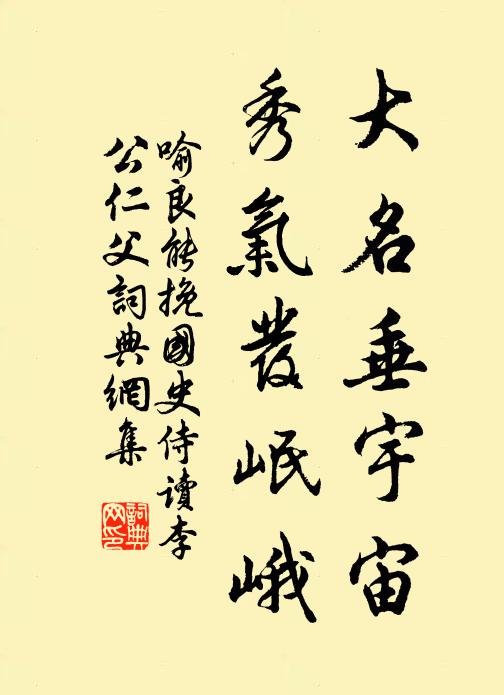 大名垂宇宙
秀氣叢岷峨
喻良能挽國史侍讀李
公仁父詞典網集
詞典網印